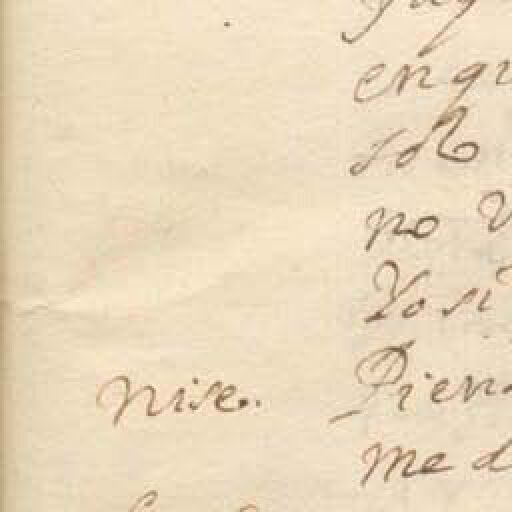 en qu
sol
no v
Yo si
nise. Pien
me d